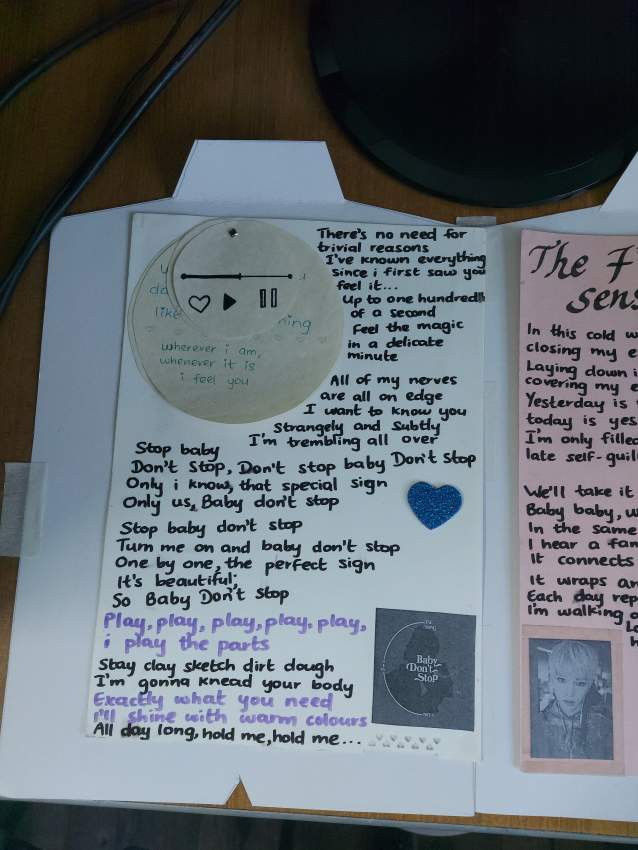 There's no need for
trivial reasons
I've known everything
since i first saw you
feel it...
up to one hundredth
of a second
Feel the magic
in a delicate
minute
like
ning
wherever i am,
whenever it is
i feel you
All of my nerves
are all on edge
I want to know you
Strangely and Subtly
I'm trembling all over
Stop baby
Don't Stop, Don't stop baby Don't stop
Only i know, that special sign
Only us, Baby don't stop
Stop baby don't stop
Turn me on and baby don't stop
One by one, the perfect sign
It's beautiful;
So Baby Don't stop
Play, play, play, play, play,
i play the parts
Stay clay sketch dirt dough
I'm gonna knead your body
Exactly what you need
i'll shine with warm colours
All day long, hold me, hold me...
Baby
Don't
Stop
The
sens
In this cold w
closing my e
Laying down i
covering my e
Yesterday is
today is yes
I'm only fille
late self-guil
We'll take it
Baby baby, w
In the same
I hear a fan
It connects
It wraps an
Each day rep
I'm walking